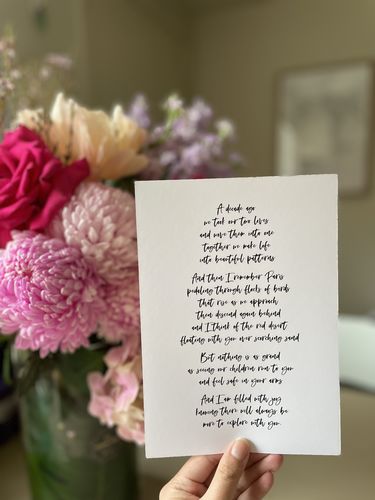 A decade ago
we took our two lives
and wove them into one
Together we make life
into beautiful patterns
And then I remember Paris
pedaling through flocks of birds
that rise as we approach
then descend again behind
and I think of the red desert
floating with you over scorching sand
But nothing is as grand
as seeing our children run to you
and feel safe in your arms
And I am filled with joy
knowing there will always be
more to explore with you.